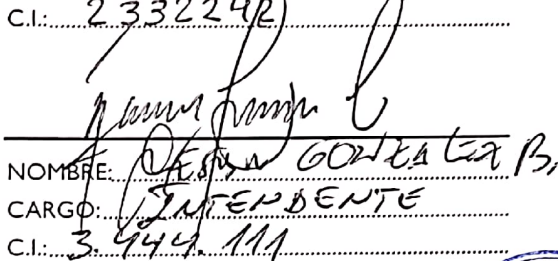 C.I.: 2332242
NOMBRE: GONZALEZ B.
CARGO: INTENDENTE
C.I.: 3.444.111